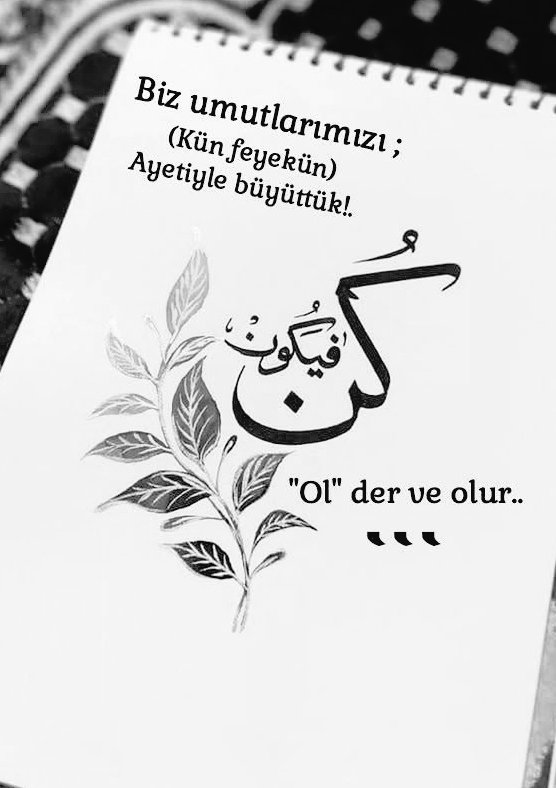 Biz umutlarımızı ;
(Kün feyekün)
Ayetiyle büyüttük!.
كُن
فَيَكُونْ
"Ol" der ve olur..